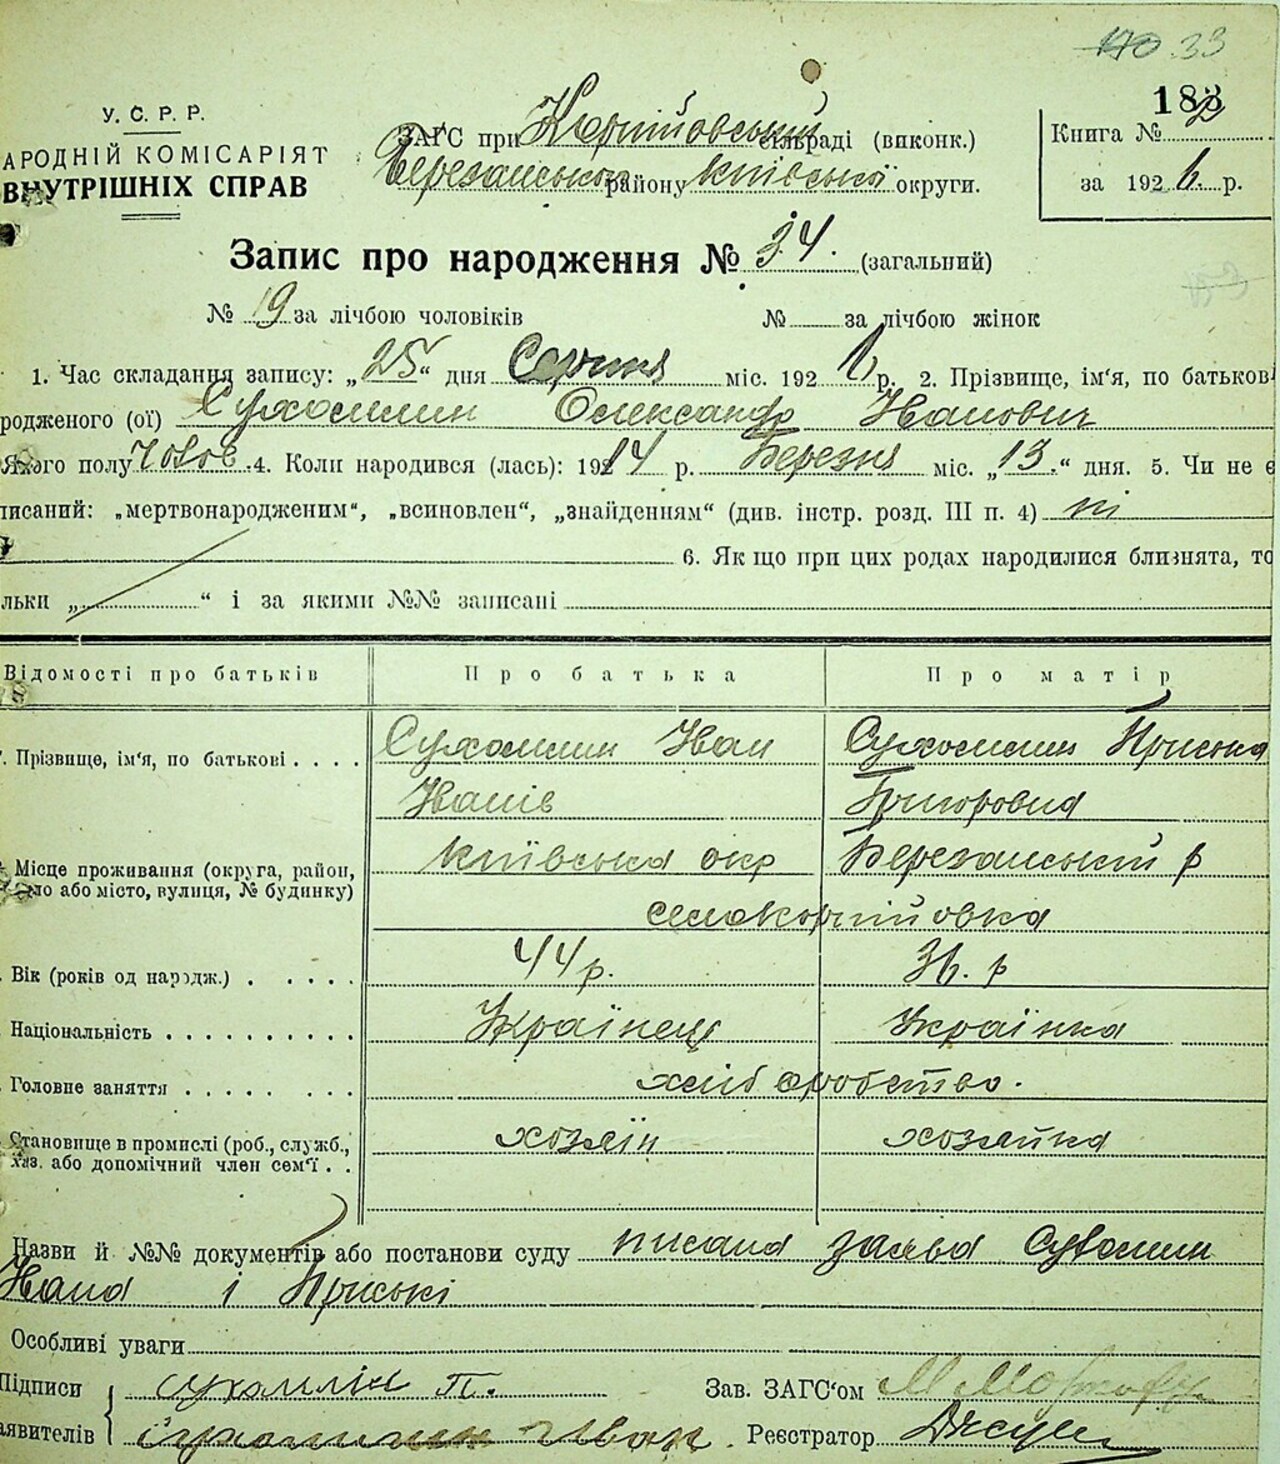 170 33
У. С. Р. Р.
АРОДНІЙ КОМІСАРІЯТ
ВНУТРІШНІХ СПРАВ
ЗАГС при Корніївський сільраді (виконк.)
Березанського району Київської округи.
182
Книга №
за 1926 р.
Запис про народження № 34. (загальний)
№ 19 за лічбою чоловіків № за лічбою жінок
1. Час складання запису: „25“ дня Серпня міс. 1926 р. 2. Прізвище, ім'я, по батькові
родженого (ої) Сухомлин Олександр Иванович
Якого полу Чолов. 4. Коли народився (лась): 1914 р. Березня міс. „13.“ дня. 5. Чи не є
писаний: „мертвонародженим“, „всиновлен“, „знайденням“ (див. інстр. розд. III п. 4) ні
6. Як що при цих родах народилися близнята, то
льки „ “ і за якими №№ записані
Відомості про батьків Про батька Про матір
Прізвище, ім'я, по батькові . . . . Сухомлин Иван Сухомлин Приська
Иванів Григоровна
Місце проживання (округа, район, Київська окр Березанський р
ло або місто, вулиця, № будинку)
село Корнійовка
Вік (років од народж.) . . . . . 44 р. 36. р
Національність . . . . . . . . . . Українець Українка
Головне заняття . . . . . . . . хліборобство.
Становище в промислі (роб., служб., хозяїн хозяйка
хаз. або допомічний член сем'ї . .
Назви й №№ документів або постанови суду писана заява Сухомлин
Ивана і Приські
Особливі уваги
Підписи Сухомлін П. Зав. ЗАГС'ом
аявителів Сухомлин Иван. Реєстратор